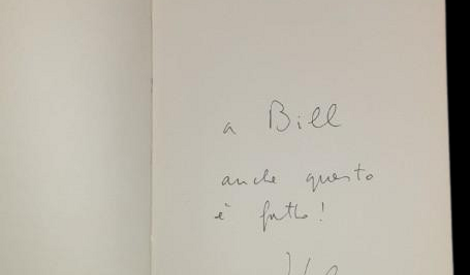 a Bill
anche questo
è fatto!